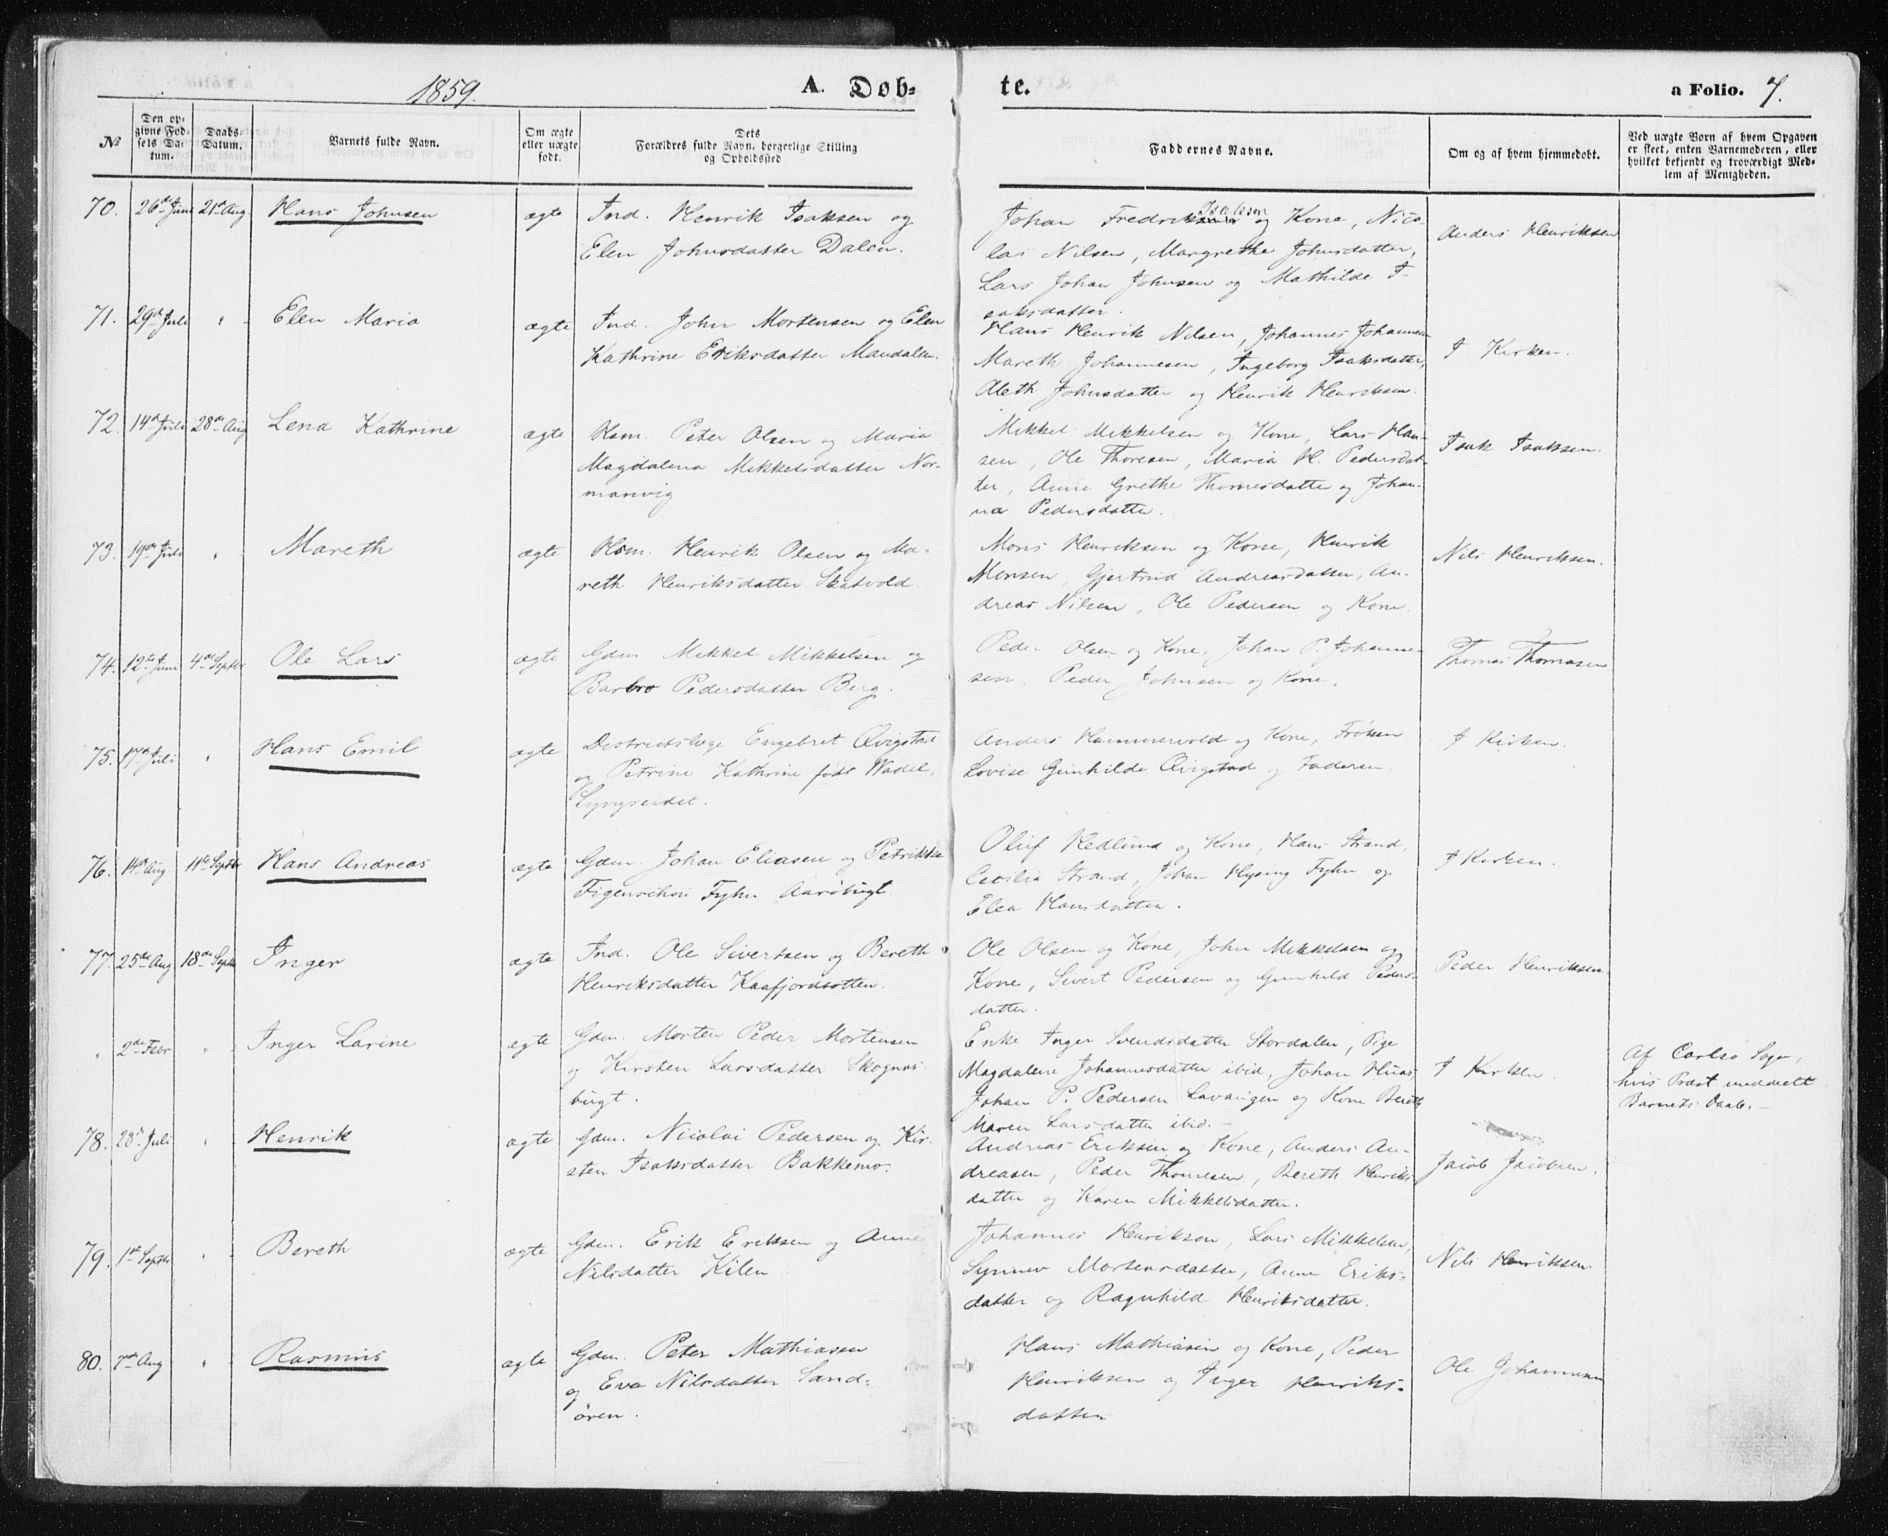 1859.
A. Døb-
te.
a Folio. 7.
No
Den op-
givne Fød-
sels Da-
tum.
Daabs-
Datum.
Barnets fulde Navn.
Om ægte
eller uægte
født.
Dets
Forældres fulde Navn, borgerlige Stilling
og Opholdssted
Faddernes Navne.
Om og af hvem hjemmedøbt.
Ved uægte Børn af hvem Opgaven
er skeet, enten Barnemoderen, eller
hvilket bekjendt og troværdigt Med-
lem af Menigheden.
70. 26de Juni 21de Aug Hans Johnsen ægte
Ind. Henrik Isaksen og
Elen Johnsdatter Dalen.
Isaksen
Johan Fredriksen og Kone, Nico-
lai Nilsen, Margrethe Johnsdatter,
Lars Johan Johnsen og Mathilde I-
saksdatter.
Anders Henriksen
71. 29de Juli " Elen Maria ægte
Ind. John Mortensen og Elen
Kathrine Eriksdatter Mandalen.
Hans Henrik Nilsen, Johannes Johannesen
Mareth Johannesen, Ingeborg Isaksdatter,
Aleth Johnsdatter og Henrik Henriksen.
I Kirken.
72. 14de Juli 28de Aug Lena Kathrine ægte
Hsm. Peter Olsen og Maria
Magdalena Mikkelsdatter Nor-
manvig
Mikkel Mikkelsen og Kone, Lars Han-
sen, Ole Thoresen, Maria H. Pedersdat-
ter, Anne Grethe Thomesdatter og Johan-
na Pedersdatter.
Isak Isaksen.
73. 19de Juli " Mareth ægte
Hsm. Henrik Olsen og Ma-
reth Henriksdatter Skatvold
Mons Henriksen og Kone, Henrik
Monsen, Gjertrud Andreasdatter, An-
dreas Nilsen, Ole Pedersen og Kone.
Nils Henriksen.
74. 12te Juni 4de Septbr Ole Lars ægte
Gdm. Mikkel Mikkelsen og
Barbro Pedersdatter Berg.
Peder Olsen og Kone, Johan P. Johanne-
sen, Peder Johnsen og Kone.
Thomas Thomasen
75. 17de Juli " Hans Emil ægte
Districtslæge Engebret Qvigstad
og Petrine Kathrine født Wadel,
Lyngseidet.
Anders Hammervold og Kone, Frøken
Lovise Gunhilde Qvigstad og Faderen
I Kirken.
76. 14de Aug 11te Septbr Hans Andreas ægte
Gdm. Johan Eliasen og Petrikke
Figenschou Fyhn Aarøbugt
Oluf Hedlund og Kone, Hans Strand,
Cecilia Strand, Johan Hysing Fyhn og
Elea Hansdatter.
I Kirken.
77. 25de Aug 18de Septbr Inger ægte
Ind. Ole Sivertsen og Bereth
Henriksdatter Kaafjordbotten.
Ole Olsen og Kone, John Mikkelsen og
Kone, Sivert Pedersen og Gunhild Peders-
datter.
Peder Henriksen
" 2de Febr " Inger Larine ægte
Gdm. Morten Peder Mortensen
og Kirsten Larsdatter Skognes-
bugt.
Enke Inger Svendsdatter Stordalen, Pige
Magdalene Johannesdatter ibid, Johan Huas,
Johan P. Pedersen Lavangen og Kone Bereth
Maren Larsdatter ibid.
I Kirken.
Af Carlsø Sogn,
hvis Præst meddelt
Barnets Daab. –
78. 28de Juli " Henrik ægte
Gdm. Nicolai Pedersen og Kir-
sten Isaksdatter Bakkemo.
Andreas Eriksen og Kone, Anders An-
dreasen, Peder Thomesen, Bereth Henriks-
datter og Karen Mikkelsdatter.
Jacob Jacobsen.
79. 1ste Septbr " Bereth ægte
Gdm. Erik Eriksen og Anne
Nilsdatter Kilen
Johannes Henriksen, Lars Mikkelsen,
Synnev Mortensdatter, Anne Eriks-
datter og Ragnhild Henriksdatter.
Nils Henriksen
80. 7de Aug " Rasmus ægte
Gdm. Peter Mathiasen
og Eva Nilsdatter Sand-
ören.
Hans Mathiasen og Kone, Peder
Henriksen og Inger Henriks-
datter
Ole Johannesen